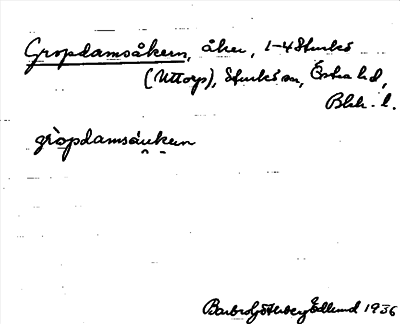 Gropdamsåkern, åker, 1-4 Sturkö
(Uttorp), Sturkö sn, Östra hd,
Blek. l.
gròpdamsåukeṇ
Barbro Götlberg Edlund 1936